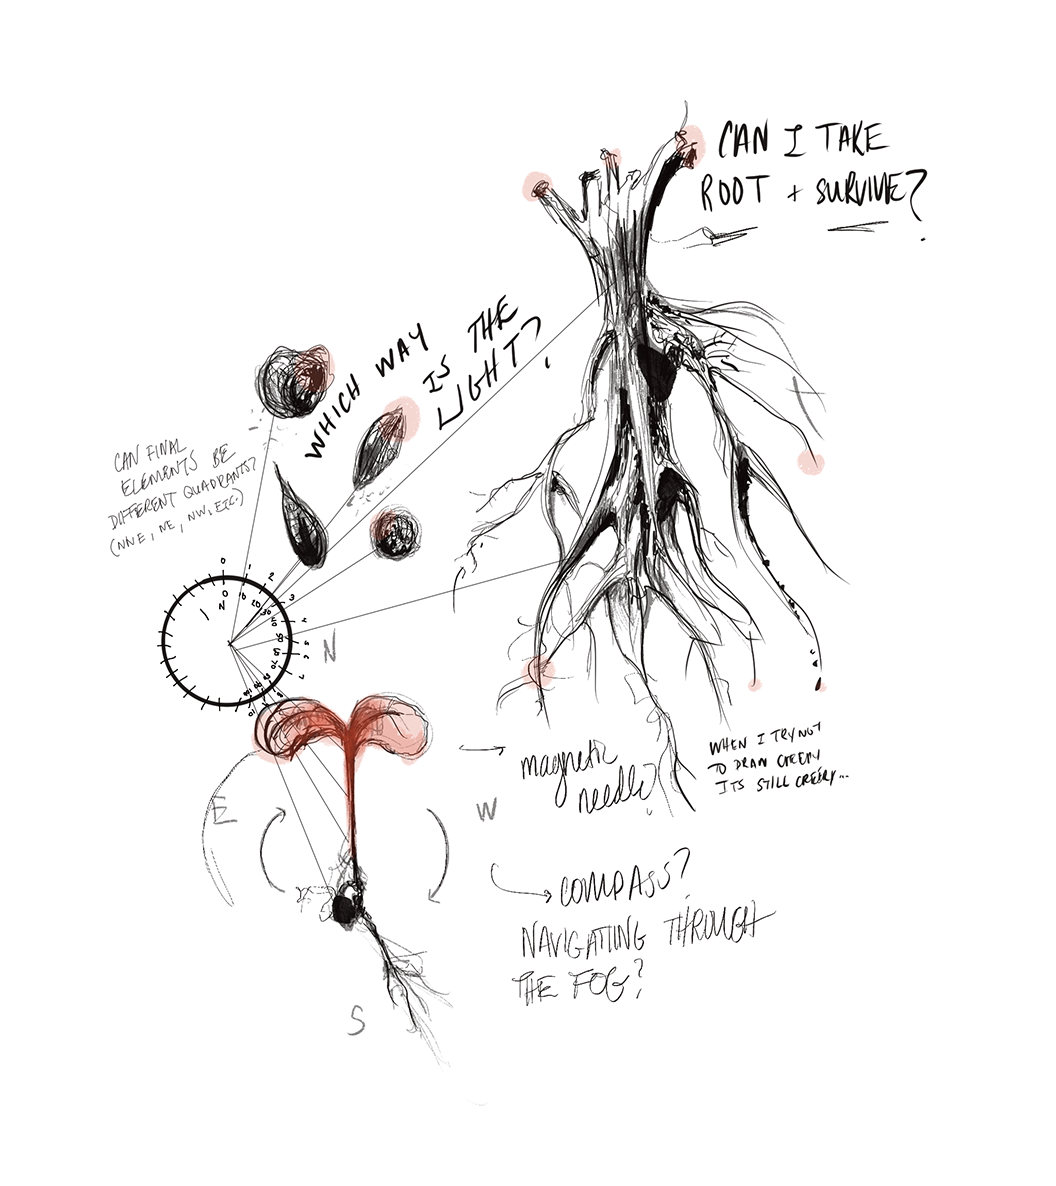 CAN I TAKE
ROOT + SURVIVE?
WHICH WAY
IS THE
LIGHT?
CAN FINAL
ELEMENTS BE
DIFFERENT QUADRANTS?
(NNE, NE, NW, ETC.)
0
1
2
3
4
5
6
7
0
N
10
20
30
N
E
W
S
magnetic
needle?
WHEN I TRY NOT
TO DRAW CREEPY
ITS STILL CREEPY...
COMPASS?
NAVIGATING THROUGH
THE FOG?